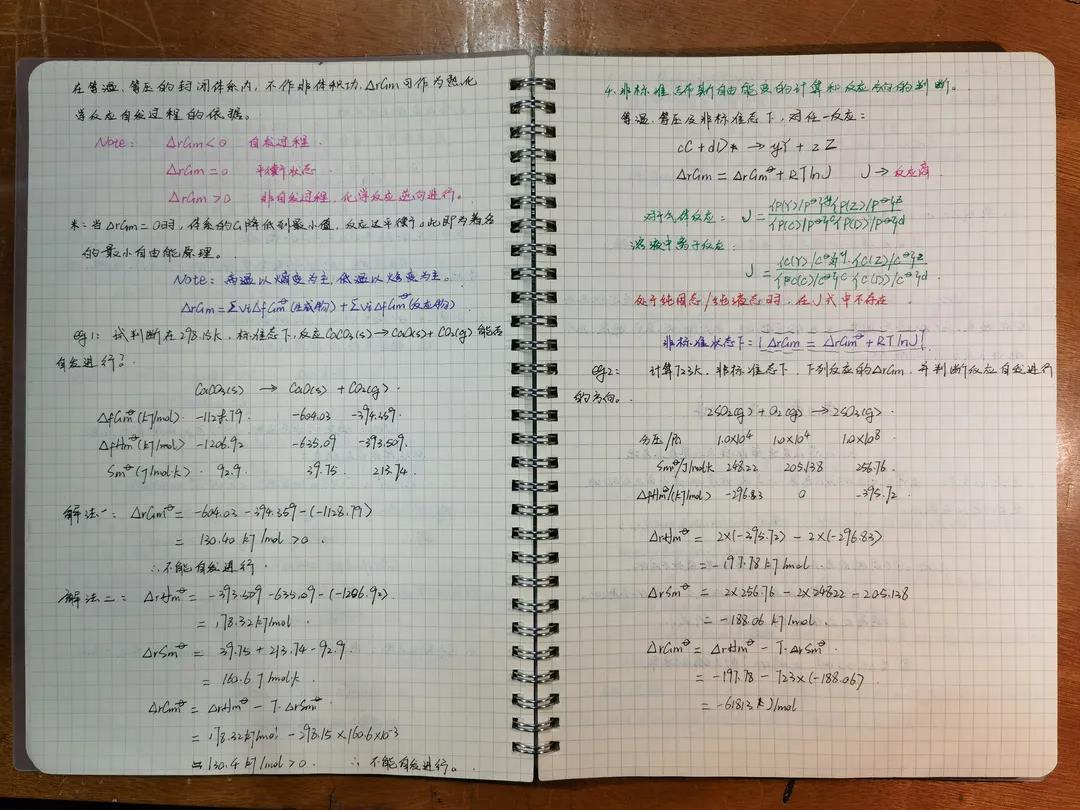 在等温、等压的封闭体系内，不作非体积功，ΔrGm可作为热化
学反应自发过程的依据。
Note： ΔrGm<0 自发过程.
ΔrGm=0 平衡状态
ΔrGm>0 非自发过程，化学反应逆向进行。
*：当ΔrGm=0时，体系的G降低到最小值，反应达平衡。此即为著名
的最小自由能原理。
Note：高温以熵变为主，低温以焓变为主。
ΔrGm=ΣviΔfGm⊖(生成物)+ΣviΔfGm⊖(反应物)
eg1：试判断在298.15K、标准态下，反应CaCO3(s)→CaO(s)+CO2(g)能否
自发进行？
CaCO3(s) → CaO(s) + CO2(g).
ΔfGm⊖(kJ/mol) -1128.79 -604.03 -394.359.
ΔfHm⊖(kJ/mol) -1206.92 -635.09 -393.509.
Sm⊖(J/mol·k). 92.9. 39.75 213.74.
解法一：ΔrGm⊖=-604.03-394.359-(-1128.79)
=130.40kJ/mol>0.
∴不能自发进行.
解法二：ΔrHm⊖=-393.509-635.09-(-1206.92).
=178.32kJ/mol.
ΔrSm⊖=39.75+213.74-92.9.
=160.6J/mol·k.
ΔrGm⊖=ΔrHm⊖-T·ΔrSm⊖
=178.32kJ/mol-298.15×160.6×10-3
=130.4kJ/mol>0. ∴不能自发进行。
4.非标准态吉布斯自由能变的计算和反应方向的判断。
等温、等压及非标准态下，对任一反应：
cC+dD→yY+zZ
ΔrGm=ΔrGm⊖+RTlnJ J→反应商
对于气体反应：J={P(Y)/P⊖}y{P(Z)/P⊖}z
{P(C)/P⊖}c{P(D)/P⊖}d
溶液中离子反应：
J={C(Y)/C⊖}y·{C(Z)/C⊖}z
{C(C)/C⊖}c{C(D)/C⊖}d.
处于纯固态/纯液态时，在J式中不存在
非标准状态下：ΔrGm=ΔrGm⊖+RTlnJ
eg2：计算723K、非标准态下，下列反应的ΔrGm，并判断反应自发进行
的方向。
2SO2(g)+O2(g)→2SO3(g).
分压/Pa 1.0×104 1.0×104 1.0×108
Sm⊖/J/mol·k 248.22 205.138 256.76.
ΔfHm⊖/(kJ/mol) -296.83 0 -395.72.
ΔrHm⊖=2×(-395.72)-2×(-296.83)
=-197.78kJ/mol.
ΔrSm⊖=2×256.76-2×248.22-205.138
=-188.06kJ/mol.
ΔrGm⊖=ΔrHm⊖-T·ΔrSm⊖.
=-197.78-723×(-188.06)
=-61813kJ/mol